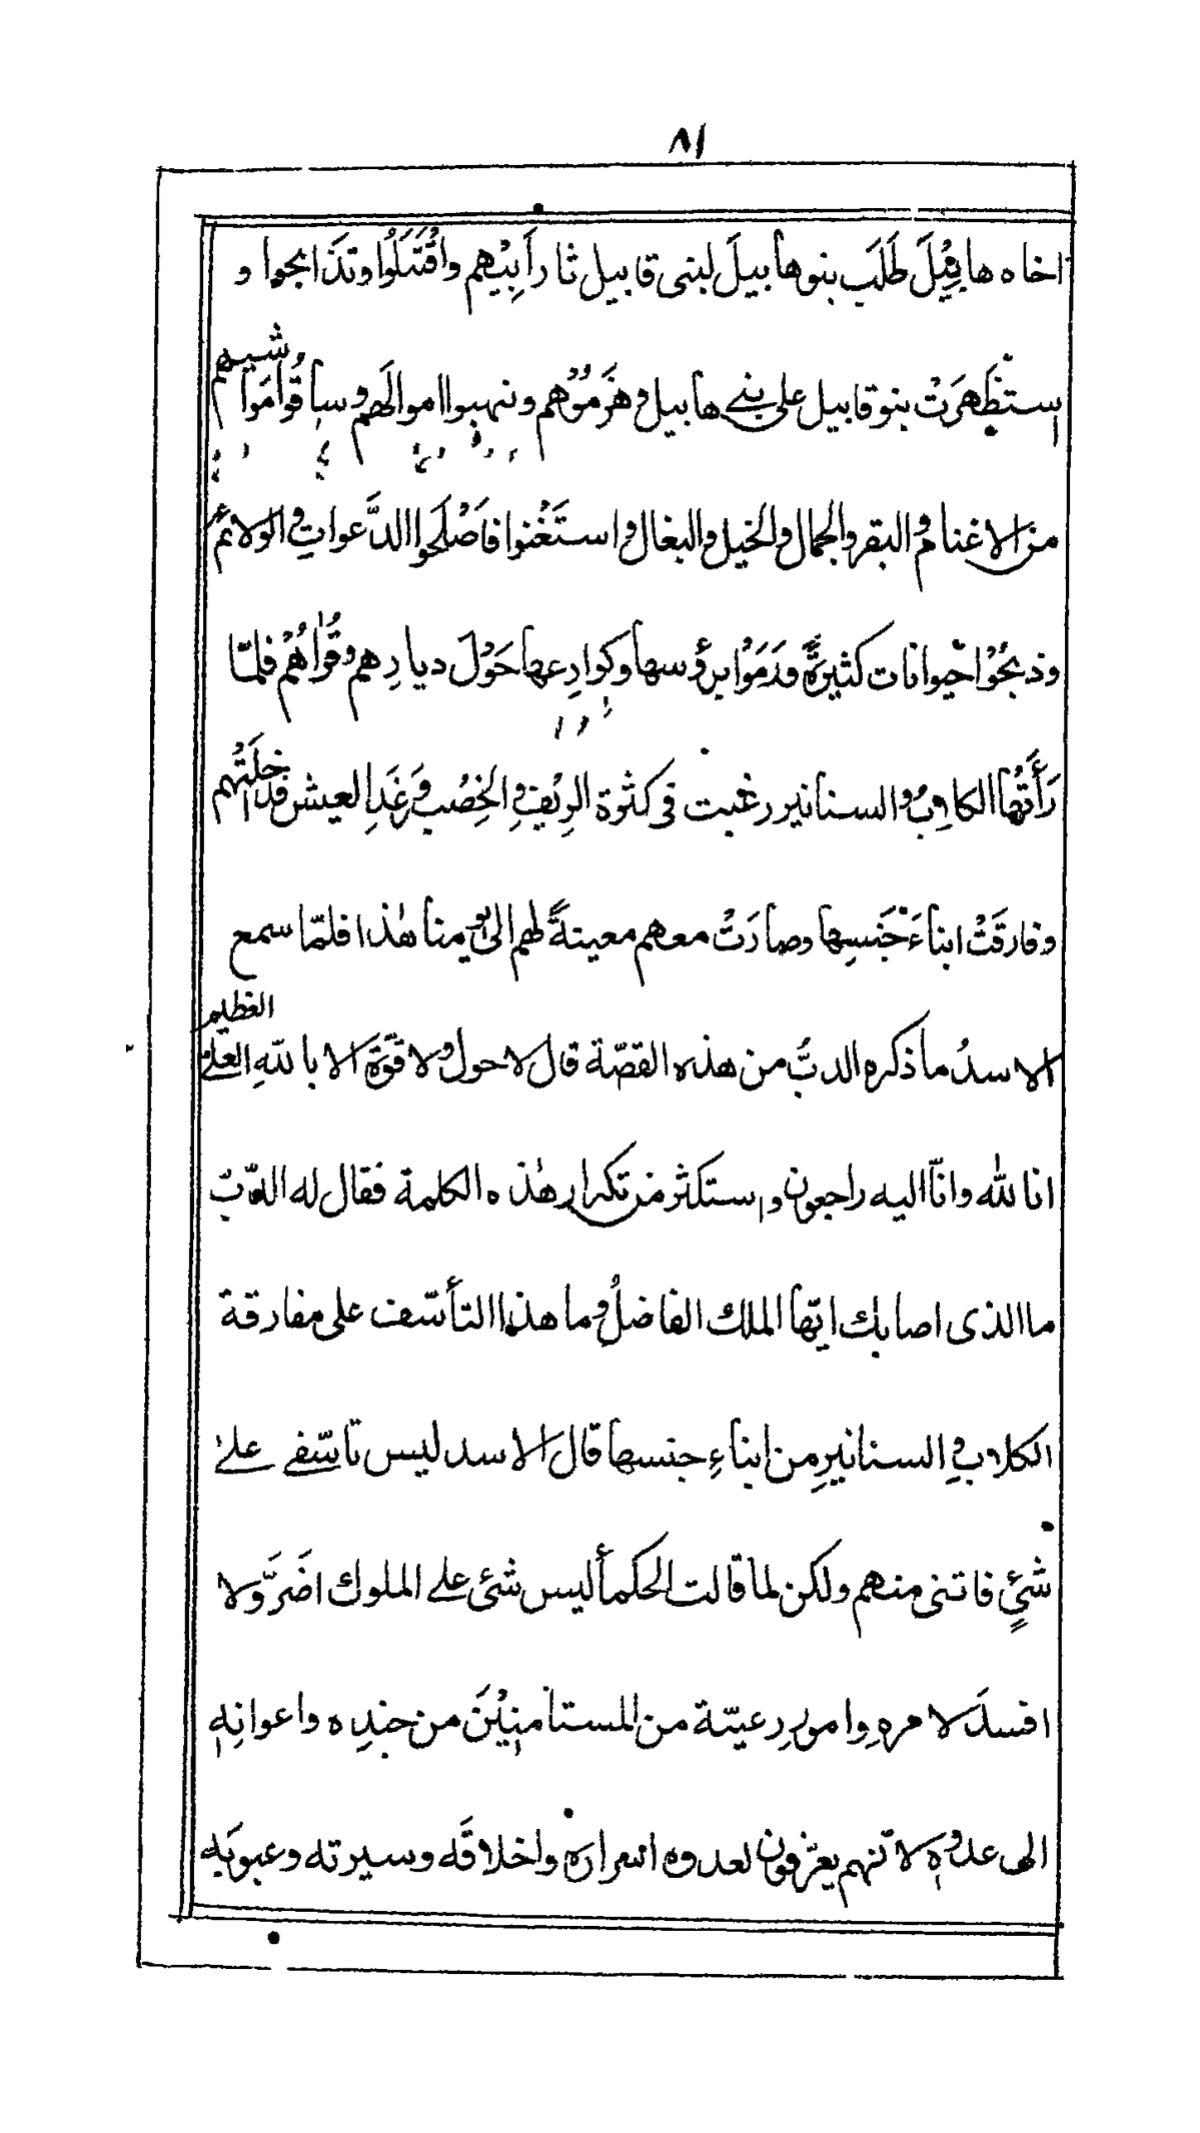 ٨١
اخاه هابِيْلَ طَلَبَ بنو هابيلَ لبنى قابيل ثارَ اَبِيْهم واقْتَتَلُوا وتَذَابحوا و
استظهَرَتْ بنو قابيل على بنے هابيل وهزَمُوْهم ونهبوا اموالَهم وساقُوا مَوَاشيهم
من الاغنام والبقر والجمال والخيل والبغال واستَغْنوا فاَصْلَحوا الدَّعواتِ والولائم
وذبحُوْا حَيوانات كثيرةً ورَمَوْا برؤسها وكوارِعها حَوْلَ ديارِهم وقُراهُمْ فلمّا
رَأَتْها الكلابُ والسنانير رغبت فى كثرة الرِيْفِ والخِصْب ورَغَدِ العيش فدَاخلَتْهم
وفارقَتْ ابناءَ جَنْسِها وصارَتْ معهم معينةً لهم الى يومنا هٰذا فلمّا سمع
الاسدُ ما ذكره الدبُّ من هذه القصّة قال لا حول ولا قوّةَ الا باللّهِ العلىِّ العظيم
انا للّه وانّا اليه راجعون واستكثر من تكرار هٰذه الكلمة فقال له الدّبّ
ما الذى اصابك ايّها الملك الفاضلُ وما هذا التأسّف على مفارقة
الكلابِ والسنانيرِ من ابناءِ جنسها قال الاسد ليس تاسّفى علےٰ
شئٍ فاتنى منهم ولكن لما قالت الحكماٴ ليس شئ على الملوك اضَرَّ ولا
افسدَ لامرهِ وامورِ رعيّة من المستامنِيْنَ من جندِه واعوانِهٖ
الى عدُوِّهٖ لانّهم يعرّفون لعدوه اسرارَه واخلاقَه وسيرته وعيوبَه